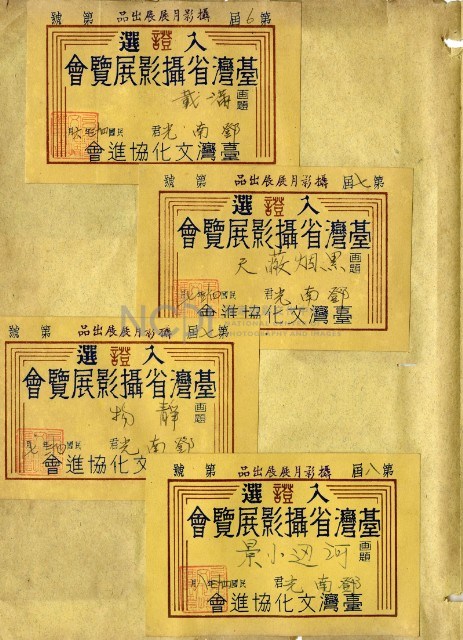 第6屆 攝影月展展出品 第 號
入證選
臺灣省攝影展覽會
画題 滿載
鄧南光君 民國
臺灣文化協進會
第七屆 攝影月展展出品 第 號
入證選
臺灣省攝影展覽會
画題 黑烟蔽天
鄧南光君 民國
臺灣文化協進會
第七屆 攝影月展展出品 第 號
入證選
臺灣省攝影展覽會
画題 靜物
鄧南光君 民國
臺灣文化協進會
第八屆 攝影月展展出品 第 號
入證選
臺灣省攝影展覽會
画題 河边小景
鄧南光君 民國
臺灣文化協進會